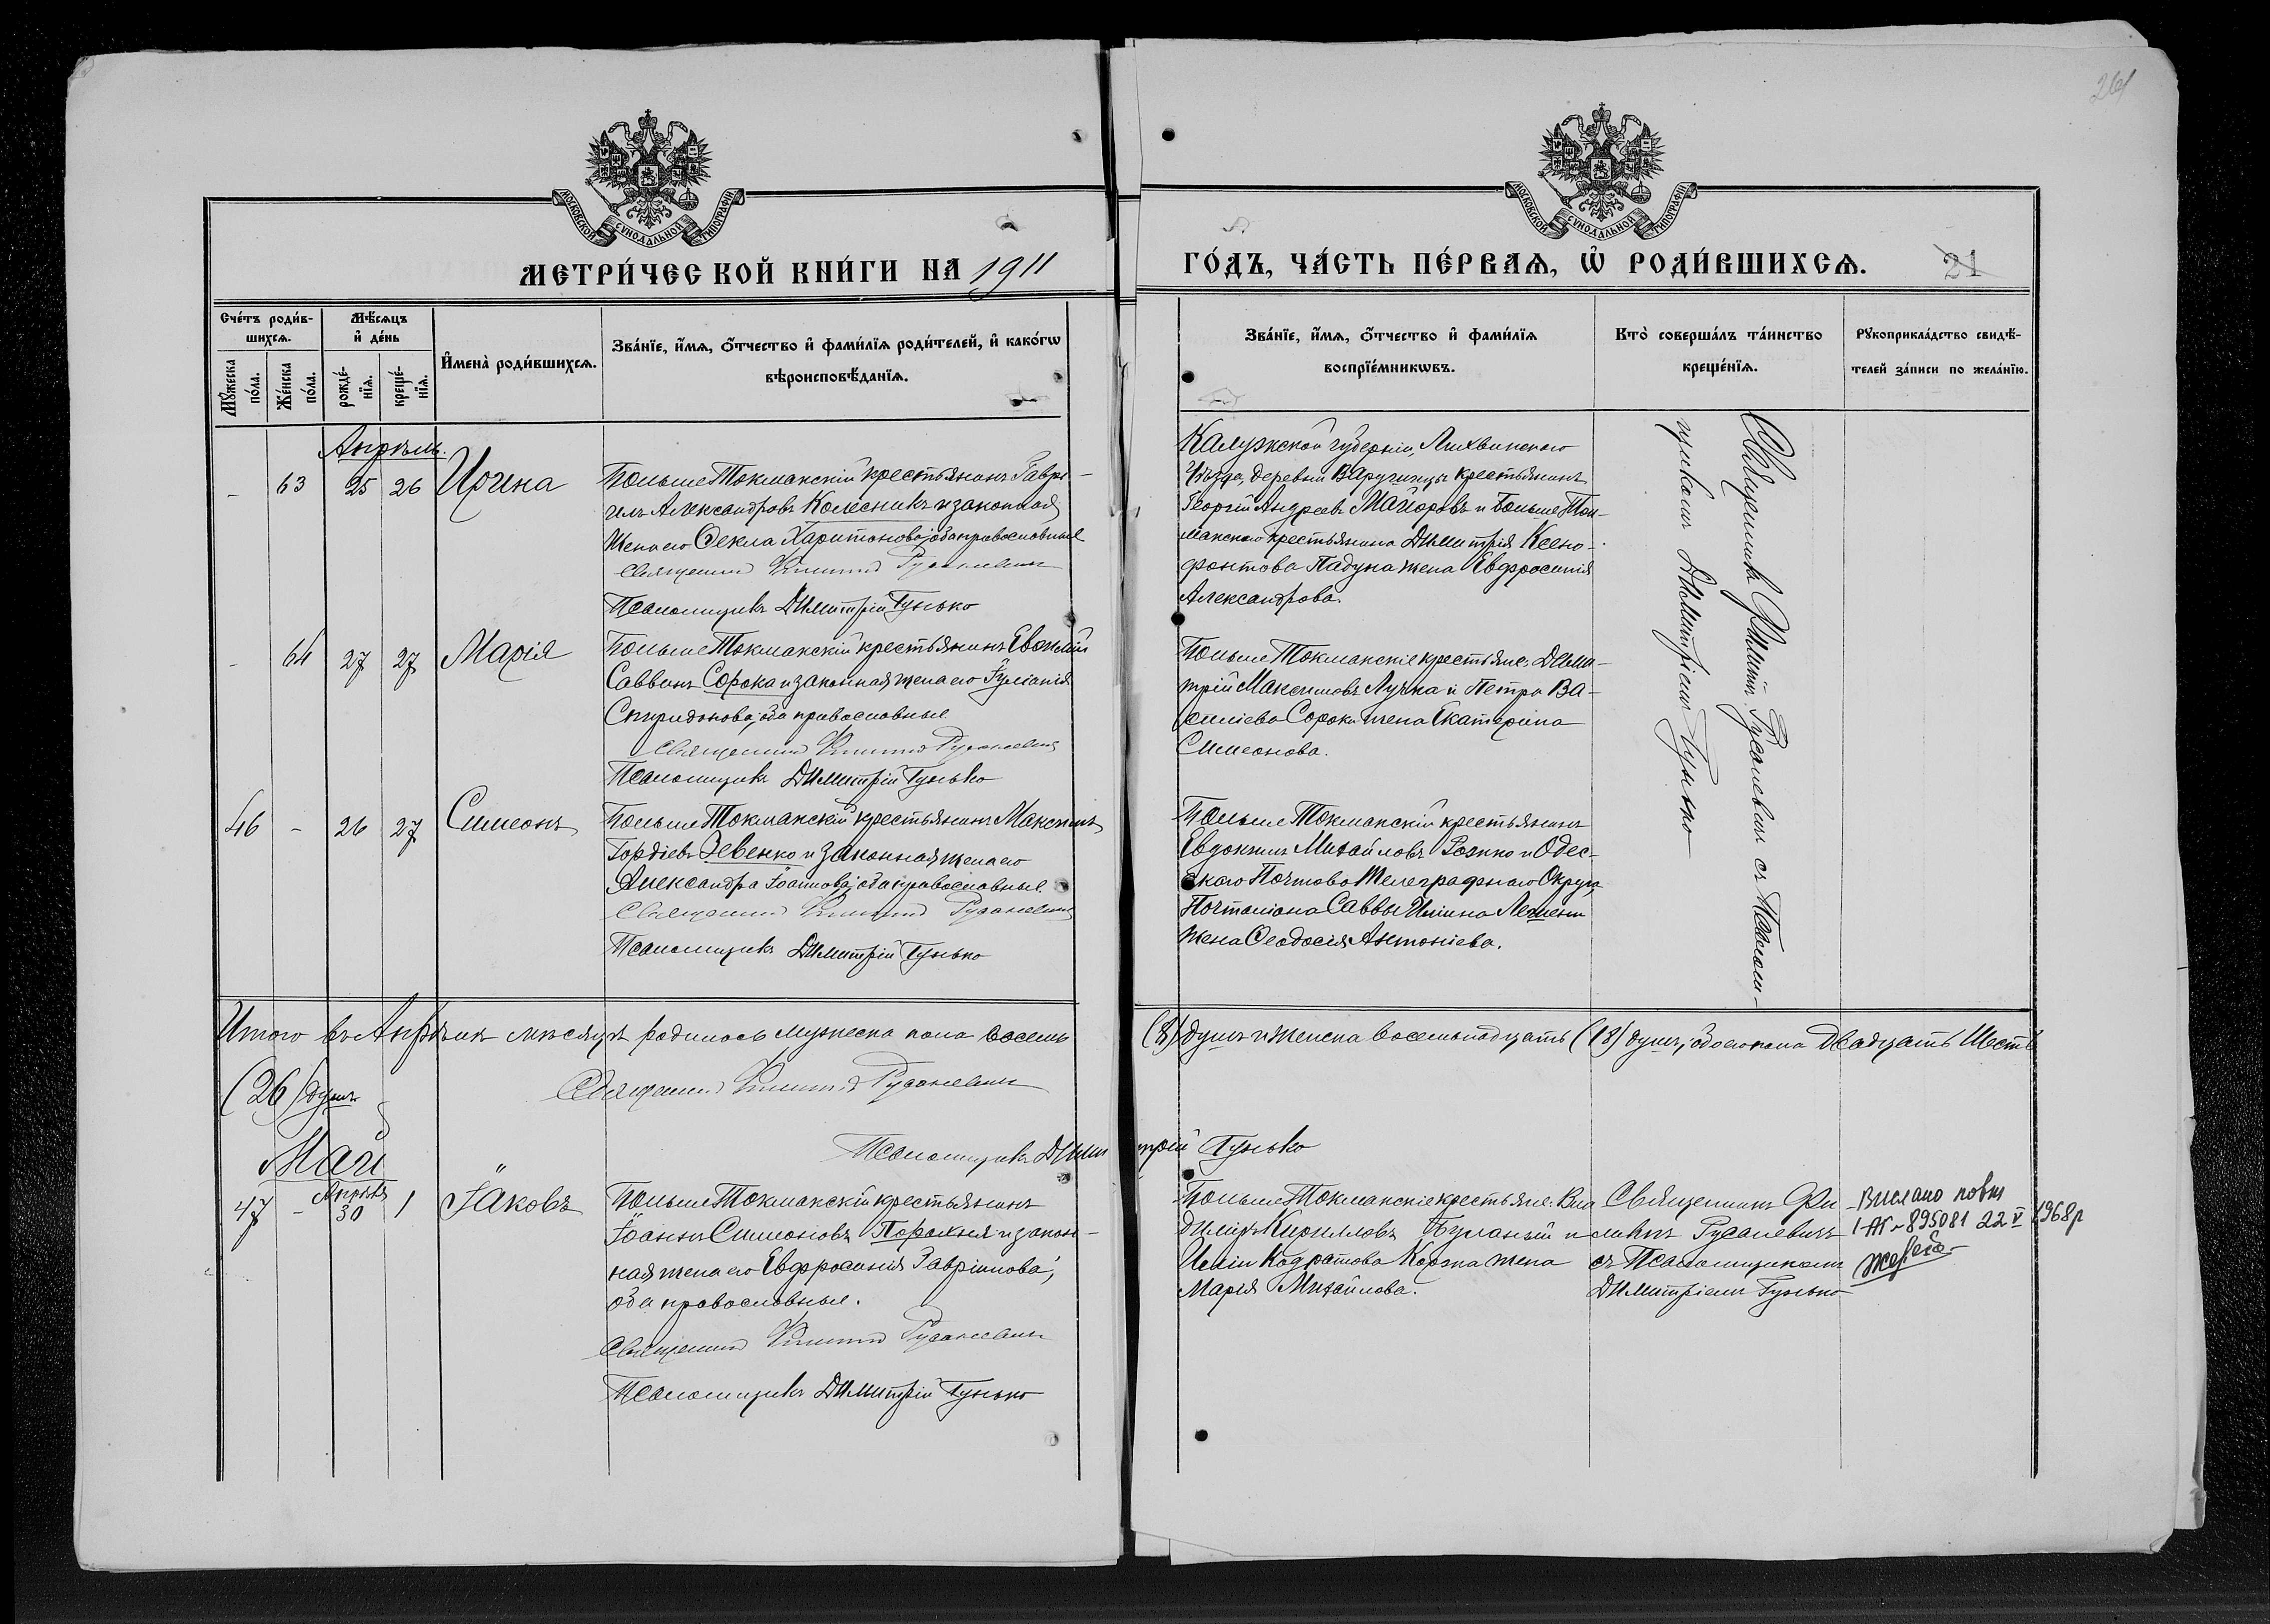 261
МОСКОВСКОЙ СѴНОДАЛЬНОЙ ТИПОГРАФІИ
МОСКОВСКОЙ СѴНОДАЛЬНОЙ ТИПОГРАФІИ
МЕТРИ́ЧЕСКОЙ КНИ́ГИ НА 1911
ГО́ДЪ, ЧА́СТЬ ПЕ́РВАѦ, Ѡ҆ РОДИ́ВШИХСѦ. 21
Сче́тъ роди́в-
шихсѧ.
Мꙋ́жеска по́ла.
Же́нска по́ла.
Мѣ́сѧцъ
и҆ де́нь
рожде́-
нїѧ.
креще́-
нїѧ.
И҆мена̀ роди́вшихсѧ.
Зва́нїе, и҆́мѧ, ѻ҆́тчество и҆ фами́лїѧ роди́телей, и҆ како́гѡ
вѣроисповѣ́данїѧ.
Зва́нїе, и҆́мѧ, ѻ҆́тчество и҆ фами́лїѧ
воспрїе́мникѡвъ.
Кто̀ соверша́лъ та́инство
креще́нїѧ.
Рꙋкоприкла́дство свидѣ́-
телей за́писи по жела́нїю.
Апрѣль.
- 63 25 26 Ирина
Больше Токмакскій крестьянинъ Гаврі-
илъ Александровъ Колесникъ и законная
жена его Ѳекла Харитонова; оба православные
Священникъ Филиппъ Русаневичъ
Псаломщикъ Димитрій Гунько
Калужской губерніи, Лихвинскаго
Уѣзда, деревни Варушицы крестьянинъ
Георгій Андреевъ Маіоровъ и Больше Ток-
макскаго крестьянина Димитрія Ксено-
фонтова Падуна жена Евфросинія
Александрова.
Священникъ Филиппъ Русаневичъ съ Псалом-
щикомъ Димитріемъ Гунько
- 64 27 27 Марія
Больше Токмакскій крестьянинъ Евѳимій
Саввинъ Сорока и законная жена его Іуліанія
Спиридонова; оба православные
Священникъ Филиппъ Русаневичъ
Псаломщикъ Димитрій Гунько
Больше Токмакскіе крестьяне: Дими-
трій Максимовъ Лучка и Петра Ва-
силіева Сороки жена Екатерина
Симеонова.
46 - 26 27 Симеонъ
Больше Токмакскій крестьянинъ Максимъ
Гордіевъ Зевенко и законная жена его
Александра Іоаннова; оба православные.
Священникъ Филиппъ Русаневичъ
Псаломщикъ Димитрій Гунько
Больше Токмакскій крестьянинъ
Евдокимъ Михайловъ Рожко и Одес-
скаго Почтово Телеграфнаго Округа,
Почталіона Саввы Иліина
жена Ѳеодосія Антоніева.
Итого въ Апрѣлѣ мѣсяцѣ родилось мужеска пола восемь
(8) душъ и женска восемнадцать (18) душъ, обоего пола двадцать шесть
(26) душъ
Священникъ Филиппъ Русаневичъ
Псаломщикъ Димитрій Гунько
Май
47 - Апрѣля 30 1 Іаковъ
Больше Токмакскій крестьянинъ
Іоаннъ Симеоновъ и закон-
ная жена его Евфросинія Гавріилова;
оба православные.
Священникъ Филиппъ Русаневичъ
Псаломщикъ Димитрій Гунько
Больше Токмакскіе крестьяне: Вла
диміръ Кирилловъ Буланый и
Иліи Кодратова Коржа жена
Марія Михайлова.
Священникъ Фи
липпъ Русаневичъ
съ Псаломщикомъ
Димитріемъ Гунько
Вислано повт
І-ЖС-895081 22 V 1968 р